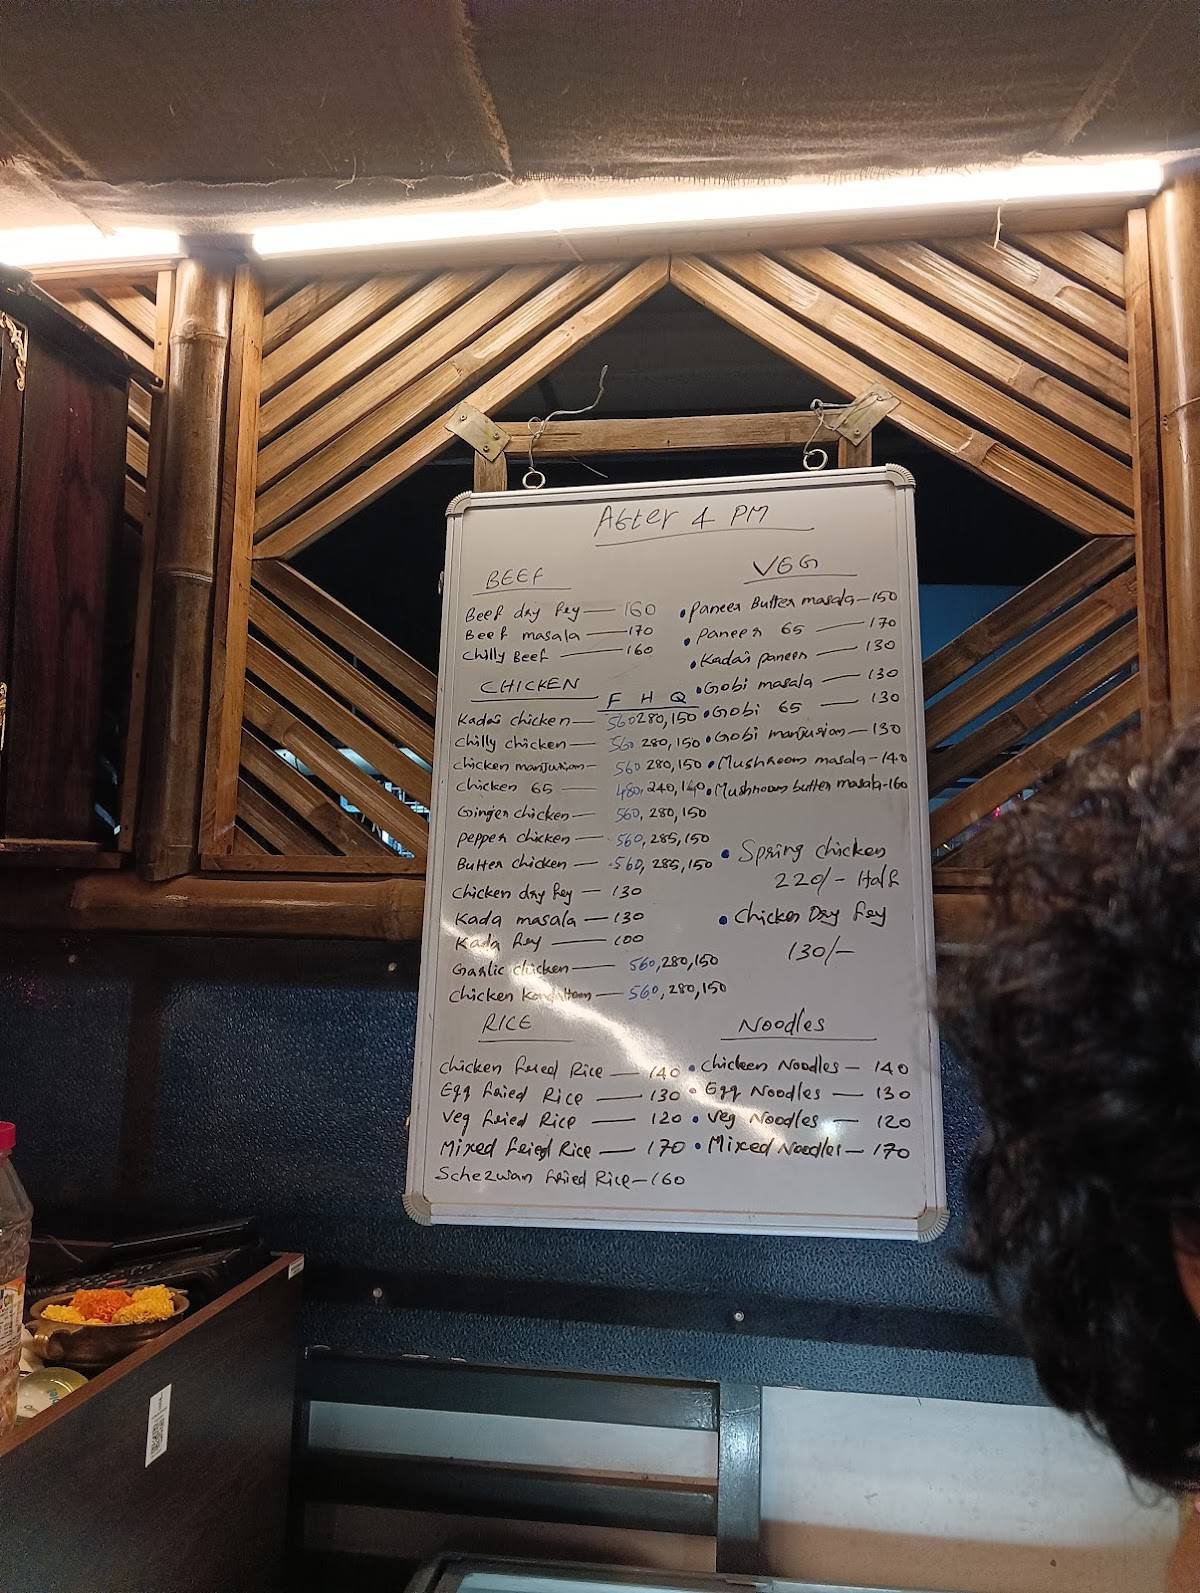 After 4 PM
BEEF
Beef dry fry — 160
Beef masala — 170
Chilly Beef — 160
CHICKEN
F H Q
Kadai chicken — 560 280, 150
Chilly chicken — 560 280, 150
Chicken manjurian — 560 280, 150
Chicken 65 — 480, 240, 140
Ginger chicken — 560, 280, 150
Pepper chicken — 560, 285, 150
Butter chicken — 560, 285, 150
Chicken dry fry — 130
Kada masala — 130
Kada fry — 100
Garlic chicken — 560, 280, 150
Chicken Kondattam — 560, 280, 150
VEG
• Paneer Butter masala — 150
• Paneer 65 — 170
• Kadai paneer — 130
• Gobi masala — 130
• Gobi 65 — 130
• Gobi manjurian — 130
• Mushroom masala — 140
• Mushroom butter masala — 160
• Spring chicken
220/- Half
• Chicken Dry fry
130/-
RICE
Chicken fried Rice — 140
Egg fried Rice — 130
Veg fried Rice — 120
Mixed fried Rice — 170
Schezwan fried Rice — 160
Noodles
• Chicken Noodles — 140
• Egg Noodles — 130
• Veg Noodles — 120
• Mixed Noodles — 170